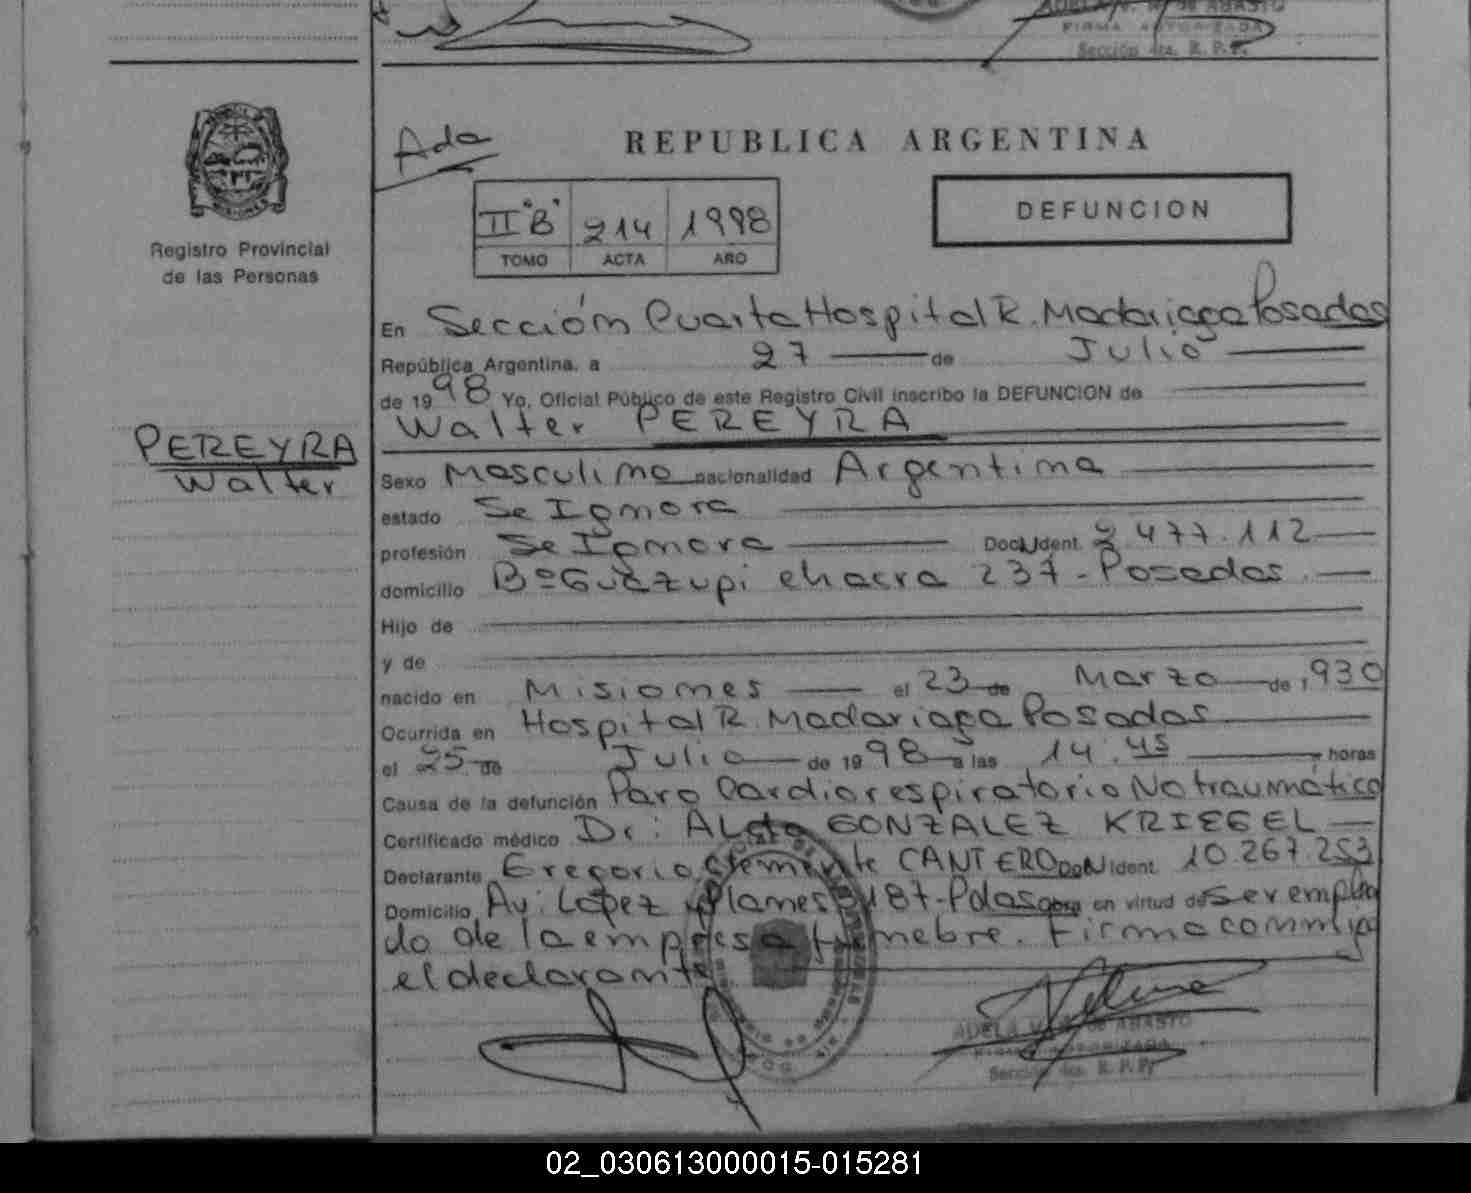 FIRMA AUTORIZADA
Sección 4ta. R. P. P.
Ada
REPUBLICA ARGENTINA
II "B" 214 1998
TOMO ACTA AÑO
DEFUNCION
Registro Provincial
de las Personas
En Sección Cuarta Hospital R. Madariaga Posadas
República Argentina, a 27 de Julio
de 1998 Yo, Oficial Público de este Registro Civil inscribo la DEFUNCION de
Walter PEREYRA
PEREYRA
Walter
Sexo Masculino nacionalidad Argentina
estado Se Ignora
profesión Se Ignora Doc. Ident. 2.477.112
domicilio Bº Guazupi chacra 237 - Posadas.
Hijo de
y de
nacido en Misiones el 23 de Marzo de 1,930
Ocurrida en Hospital R. Madariaga Posadas
el 25 de Julio de 1998 a las 14:45 horas
Causa de la defunción Paro Cardiorespiratorio No traumático
Certificado médico Dr: Aldo GONZALEZ KRIEGEL
Declarante Gregorio Clemente CANTERO Doc. Ident. 10.267.253
Domicilio Av. López y Planes 187-Pdas obra en virtud de Ser emplea
do de la empresa funebre. Firma conmigo
el declarante
ADELA V. M. de ABASTO
FIRMA AUTORIZADA
Sección 4ta. R. P. P.
02_030613000015-015281